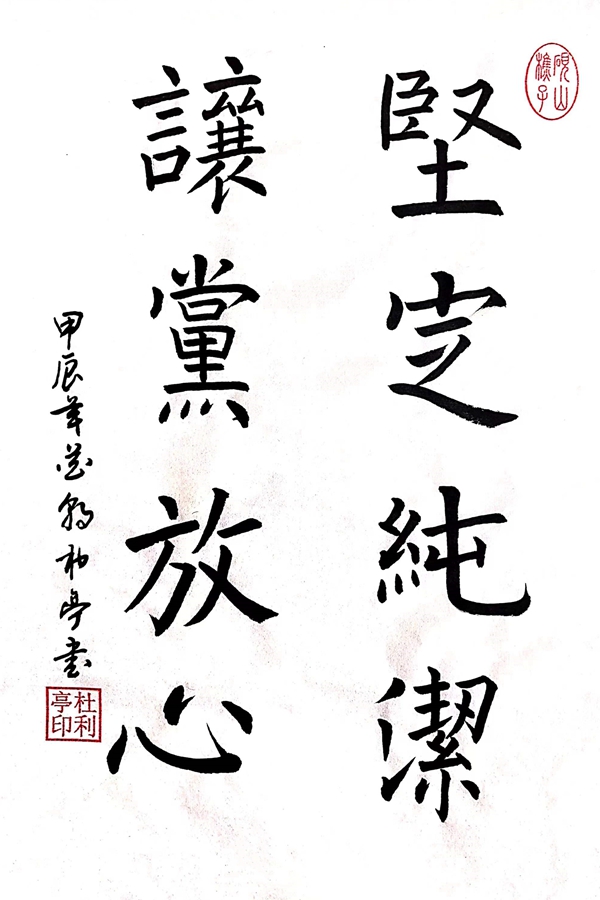 硯山
樵子
堅定純潔
讓黨放心
甲辰年利亭書
杜利
亭印